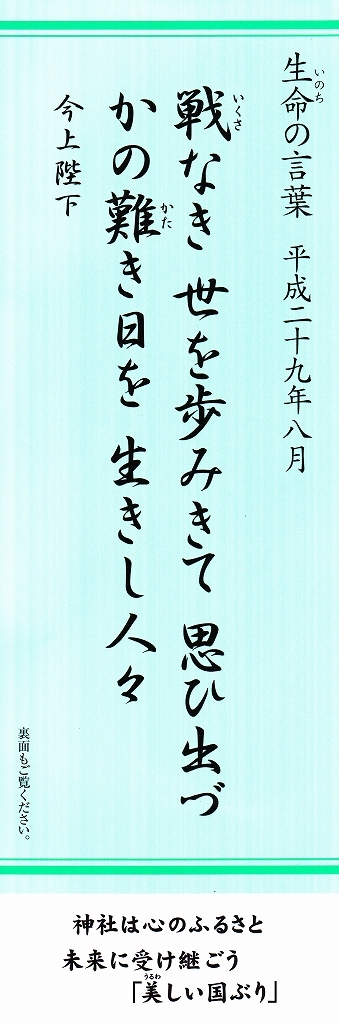 生命の言葉 平成二十九年八月
いのち
戦なき 世を歩みきて 思ひ出づ
いくさ
かの難き日を 生きし人々
かた
今上陛下
裏面もご覧ください。
神社は心のふるさと
未来に受け継ごう
「美しい国ぶり」
うるわ